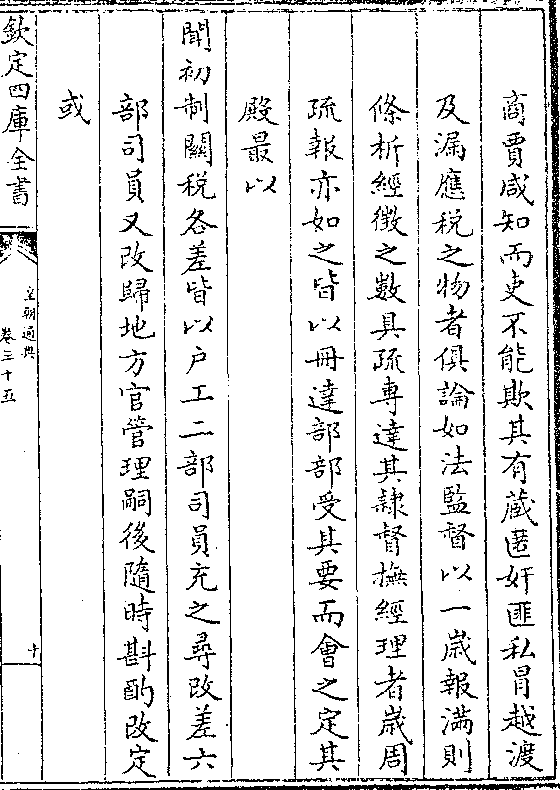 商賈咸知而吏不能欺其有藏匿奸匪私冒越渡
及漏應税之物者俱論如法監督以一歲報滿則
條析經徵之數具疏專達其隷督撫經理者歲周
疏報亦如之皆以冊達部部受其要而會之定其
殿最以
聞初制關税各差皆以户工二部司員充之尋改差六
部司員又改歸地方官管理嗣後隨時斟酌改定
或
欽定四庫全書
皇朝通典
卷三十五
十